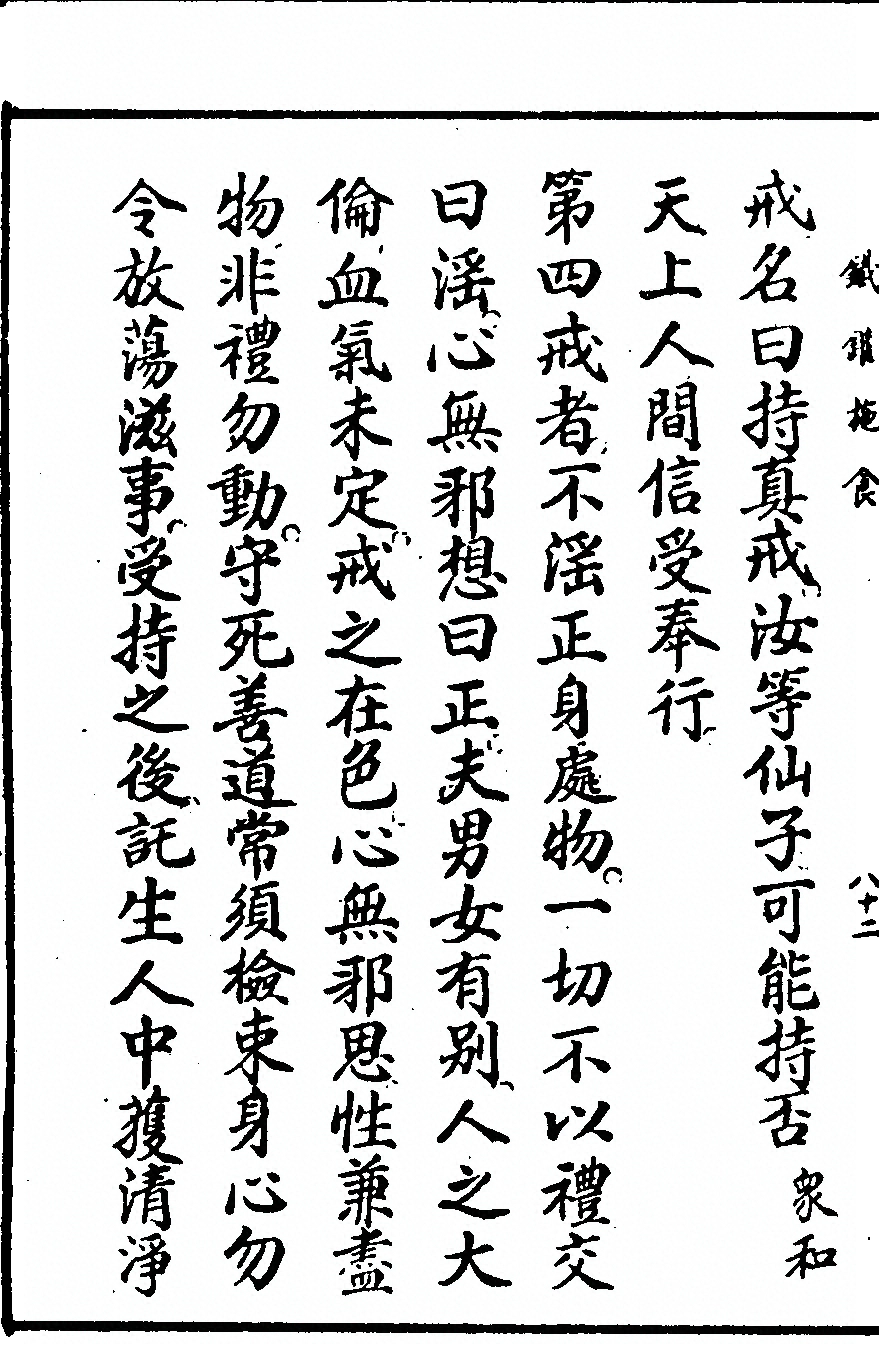 鐵鑵施食
八十二
戒名曰持真戒汝等仙子可能持否 衆和
天上人間信受奉行
第四戒者不滛正身處物一切不以禮交
曰滛心無邪想曰正夫男女有别人之大
倫血氣未定戒之在色心無邪思性兼盡
物非禮勿動守死善道常須檢束身心勿
令放蕩滋事受持之後託生人中獲清淨